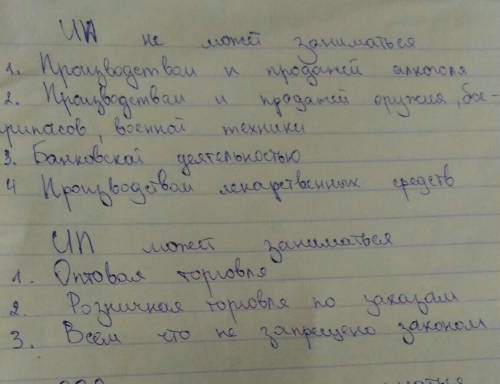 ИП не может заниматься
1. Производством и продажей алкоголя
2. Производством и продажей оружия, бое-
рипасов, военной техники
3. Банковской деятельностью
4 Производством лекарственных средств
ИП может заниматься
1. Оптовая торговля
2. Розничная торговля по заказам
3. Всем что не запрещено законом